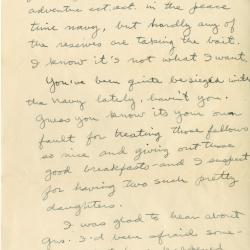 adventure ect. ect. in the peace
time navy, but hardly any of
the reserves are taking the bait.
I know it's not what I want.
You've been quite besieged with
the Navy lately, haven't you.
Guess you know its your own
fault for treating those fellows
so nice and giving out those
good breakfasts - and I suspect
for having two such pretty
daughters.
I was glad to hear about
Gus. I'd been afraid some-